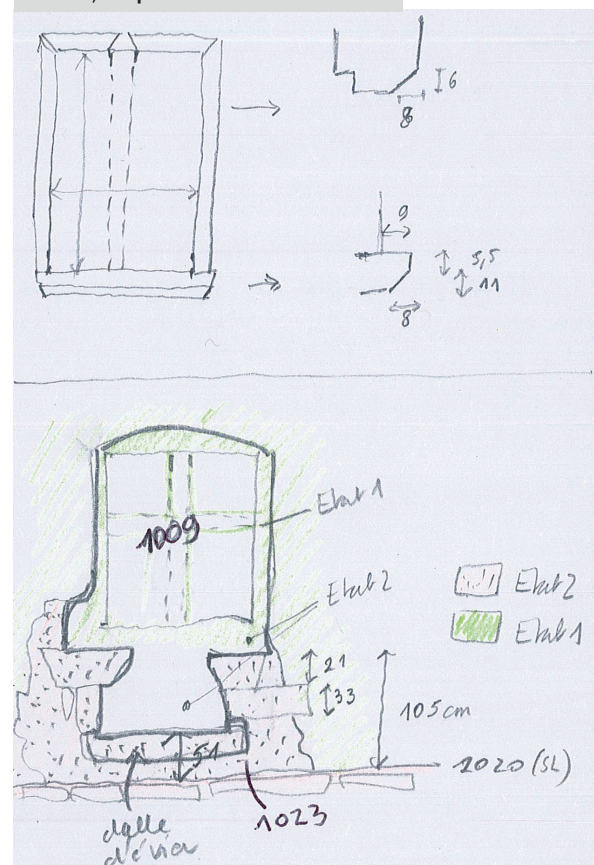 6
8
9
5,5
11
8
Etat 1
1009
Etat 2
Etat 2
Etat 1
21
33
105cm
51
2020 (SL)
1023
dalle
d'évier